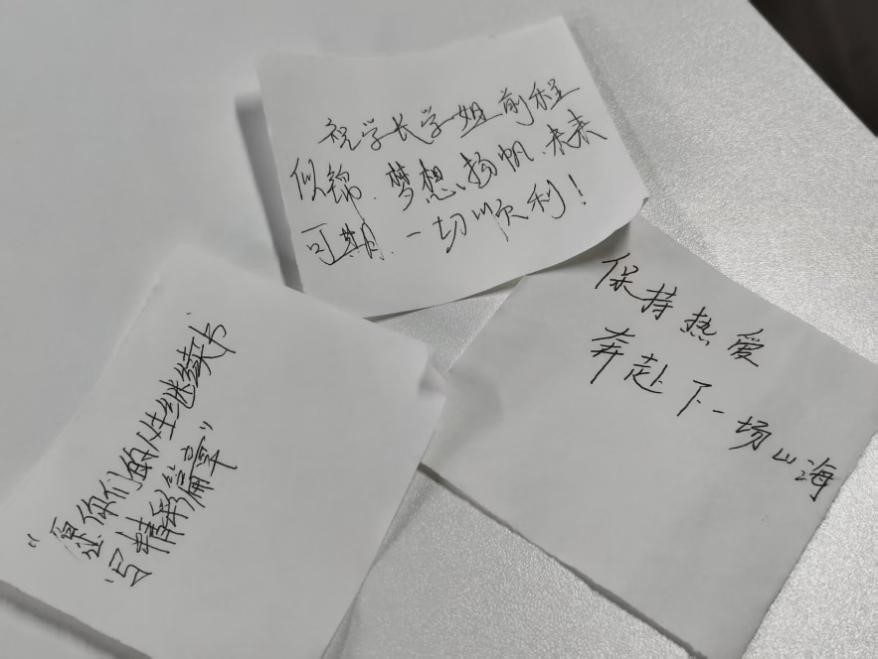 祝学长学姐前程
似锦、梦想扬帆、未来
可期、一切顺利!
保持热爱
奔赴下一场山海
“愿你们的人生继续书
写精彩篇章”